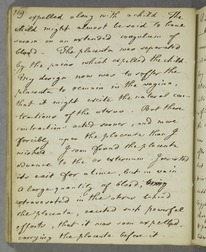 expelled along with a child. The
child might almost be said to have
swam in an extended coagulum of
blood. The placenta was separated
by the pains which expelled the child.
My design now was to suffer the
placenta to remain in the vagina,
that it might excite the natural con-
tractions of the uterus. But those
contractions acted sooner, and more
forcibly upon the placenta than I
wished. I soon found the placenta
advance to the os externum. I resisted
its exit for a time, but in vain
a large quantity of blood, being
extravasated in the uterus behind
the placenta, excited such powerful
efforts, that it was soon expelled,
carrying the placenta before it.